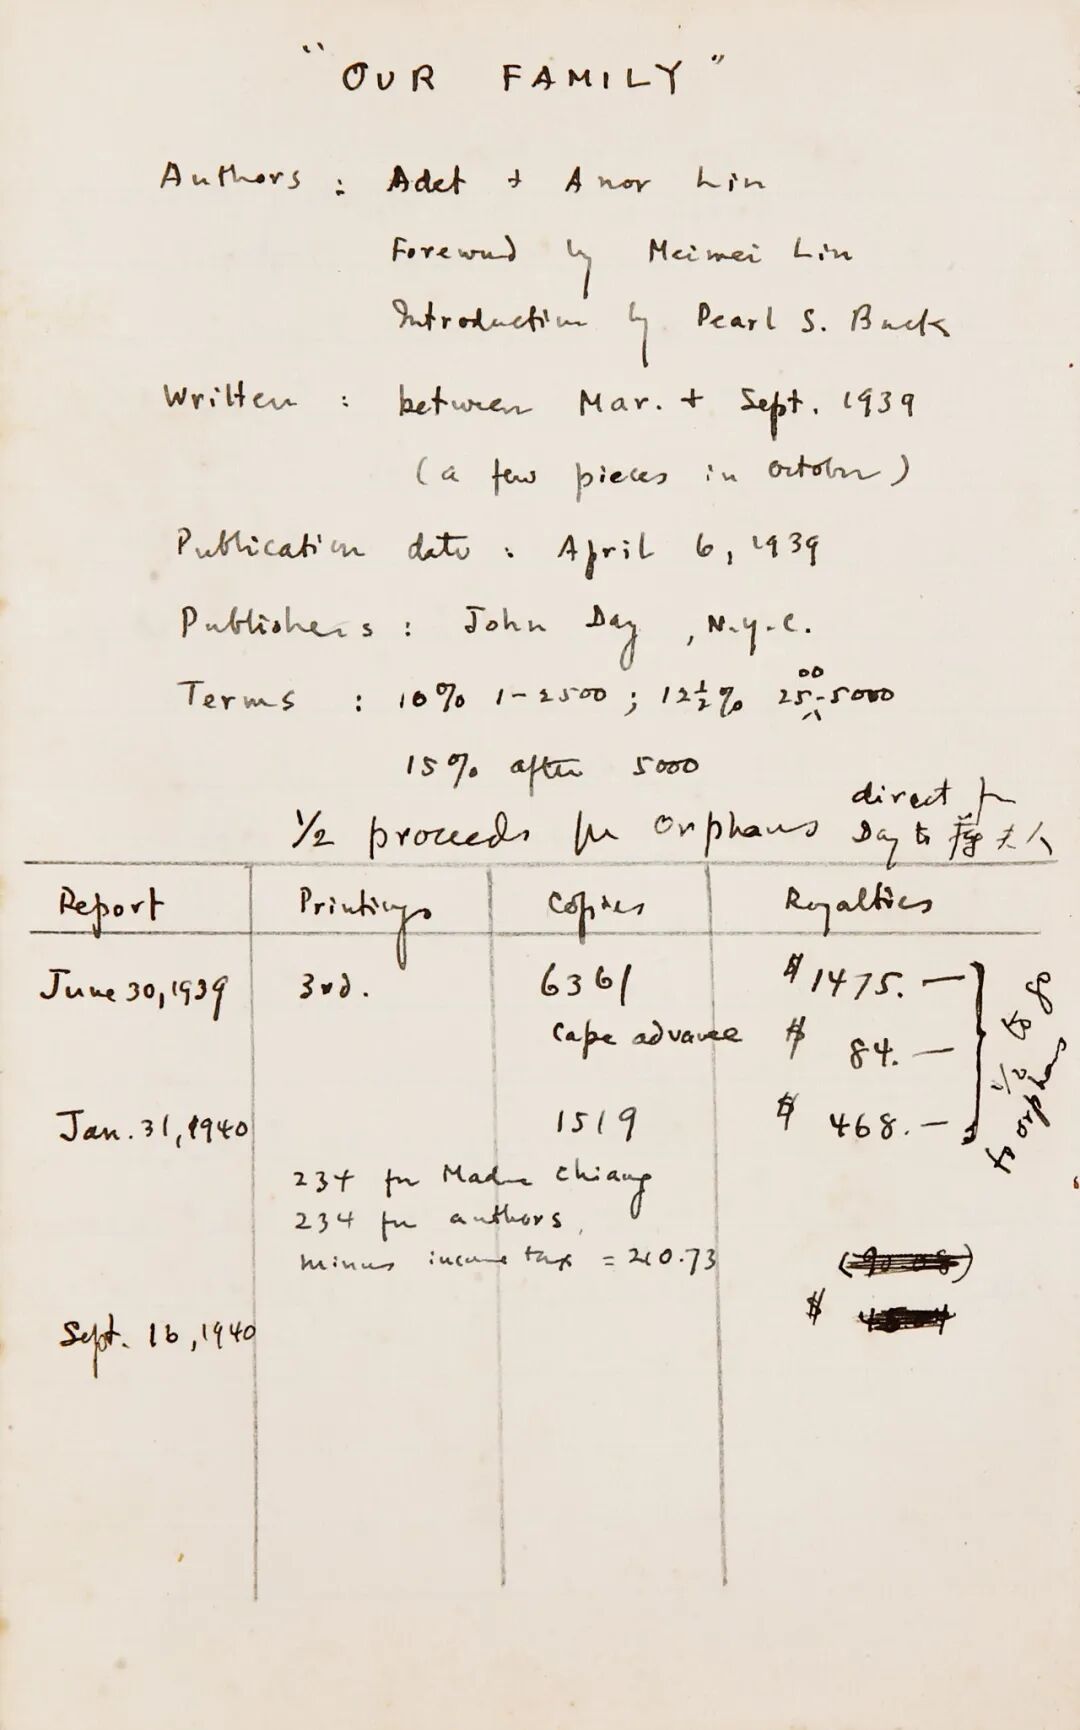 "OUR FAMILY"
Authors : Adet + Anor Lin
Foreword by Meimei Lin
Introduction by Pearl S. Buck
Written : between Mar. + Sept. 1939
(a few pieces in October)
Publication date : April 6, 1939
Publishers : John Day, N.Y.C.
Terms : 10% 1-2500 ; 12½% 2500-5000
15% after 5000
½ proceeds for Orphans direct fr Day to 蔣夫人
Report Printings Copies Royalties
June 30, 1939 3rd. 6361 $1475.—
Cape advance $ 84.—
Jan. 31, 1940 1519 $ 468.—
½ to go to orphans
234 for Madme Chiang
234 for authors,
minus income tax = 210.73
Sept. 16, 1940 $